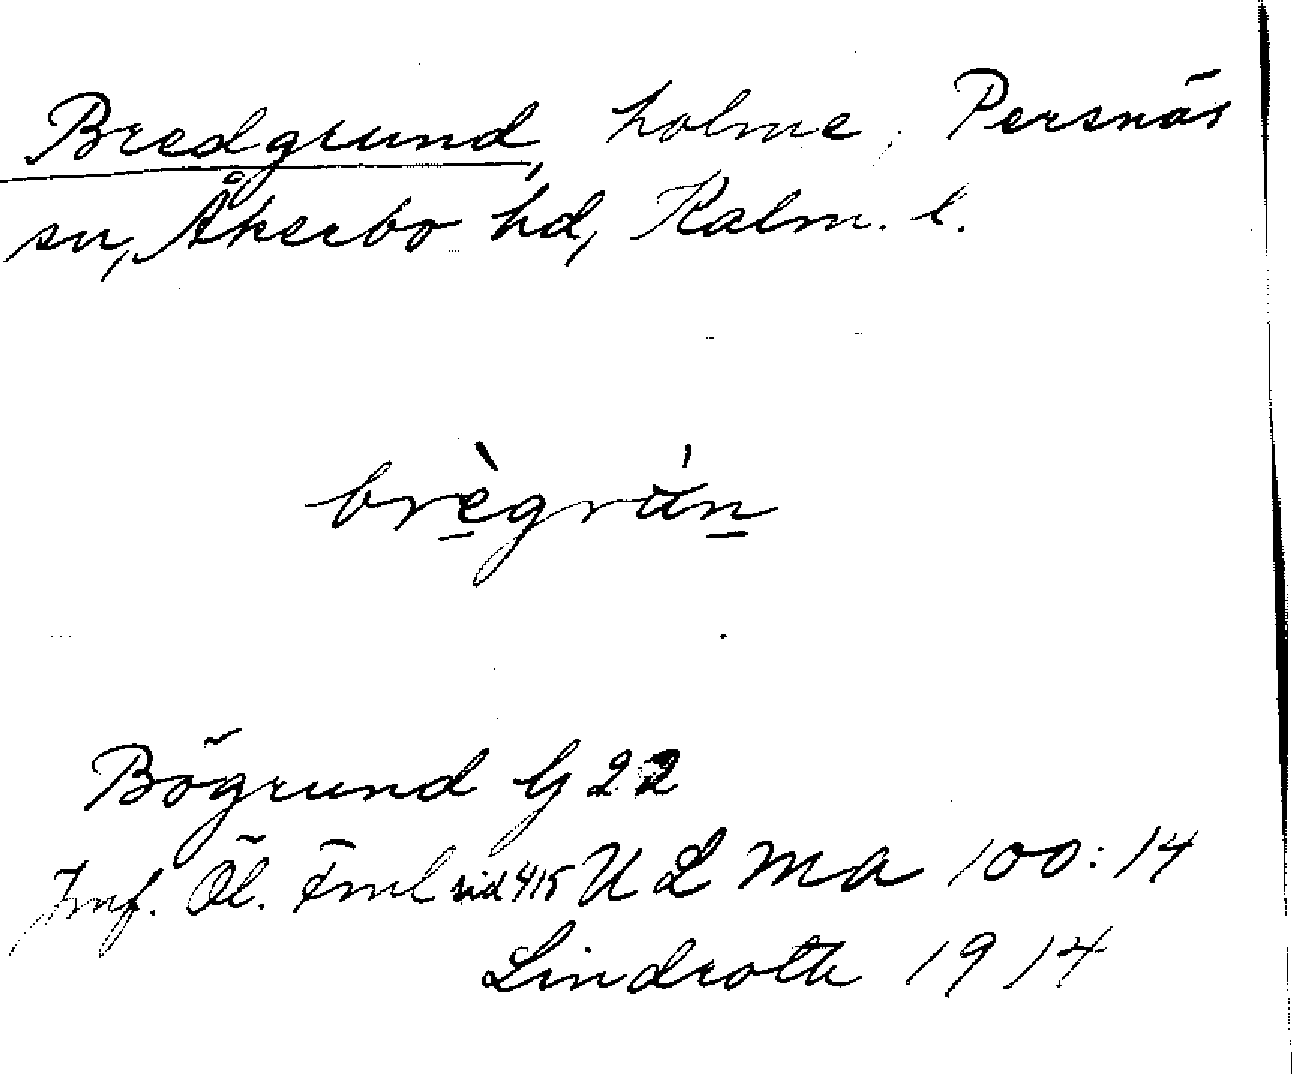 Bredgrund, holme, Persnäs
sn, Åkerbo hd, Kalm. l.
brègrún
Bögrund G 22
Jmf. Öl. Fml sid 415 ULMA 100:14
Lindroth 1914